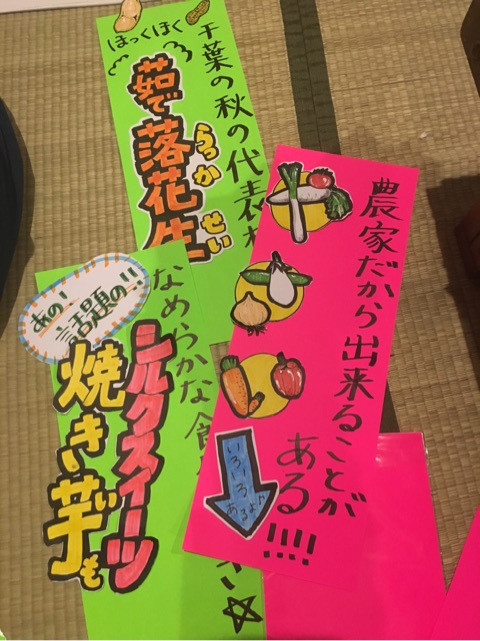 ほっくほく
千葉の秋の代表
茹で落花生
らっかせい
農家だから出来ることが
ある!!!!
いろいろ
あるよ
あの!
話題の!!
なめらかな食
シルクスイーツ
焼き芋も
い
い☆